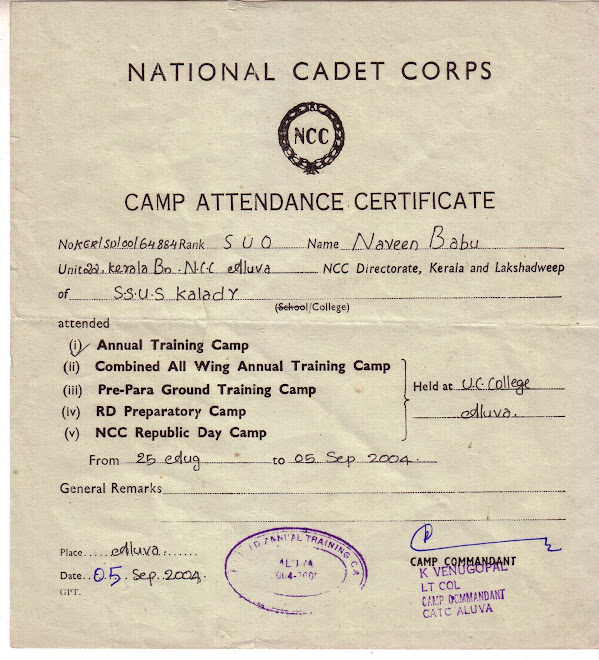 NATIONAL CADET CORPS
NCC
CAMP ATTENDANCE CERTIFICATE
No KER/SD/00/64864 Rank S U O Name Naveen Babu
Unit 22. Kerala Bn. N.C.C Aluva NCC Directorate, Kerala and Lakshadweep
of S.S.U.S Kalady
(School/College)
attended
(i) Annual Training Camp
(ii) Combined All Wing Annual Training Camp
(iii) Pre-Para Ground Training Camp
(iv) RD Preparatory Camp
(v) NCC Republic Day Camp
Held at U.C. College
Aluva.
From 25 Aug to 05 Sep 2004.
General Remarks
Place Aluva
Date 05. Sep. 2004.
GPT.
ANNUAL TRAINING CA
CAMP COMMANDANT
K VENUGOPAL
LT COL
CAMP COMMANDANT
CATC ALUVA